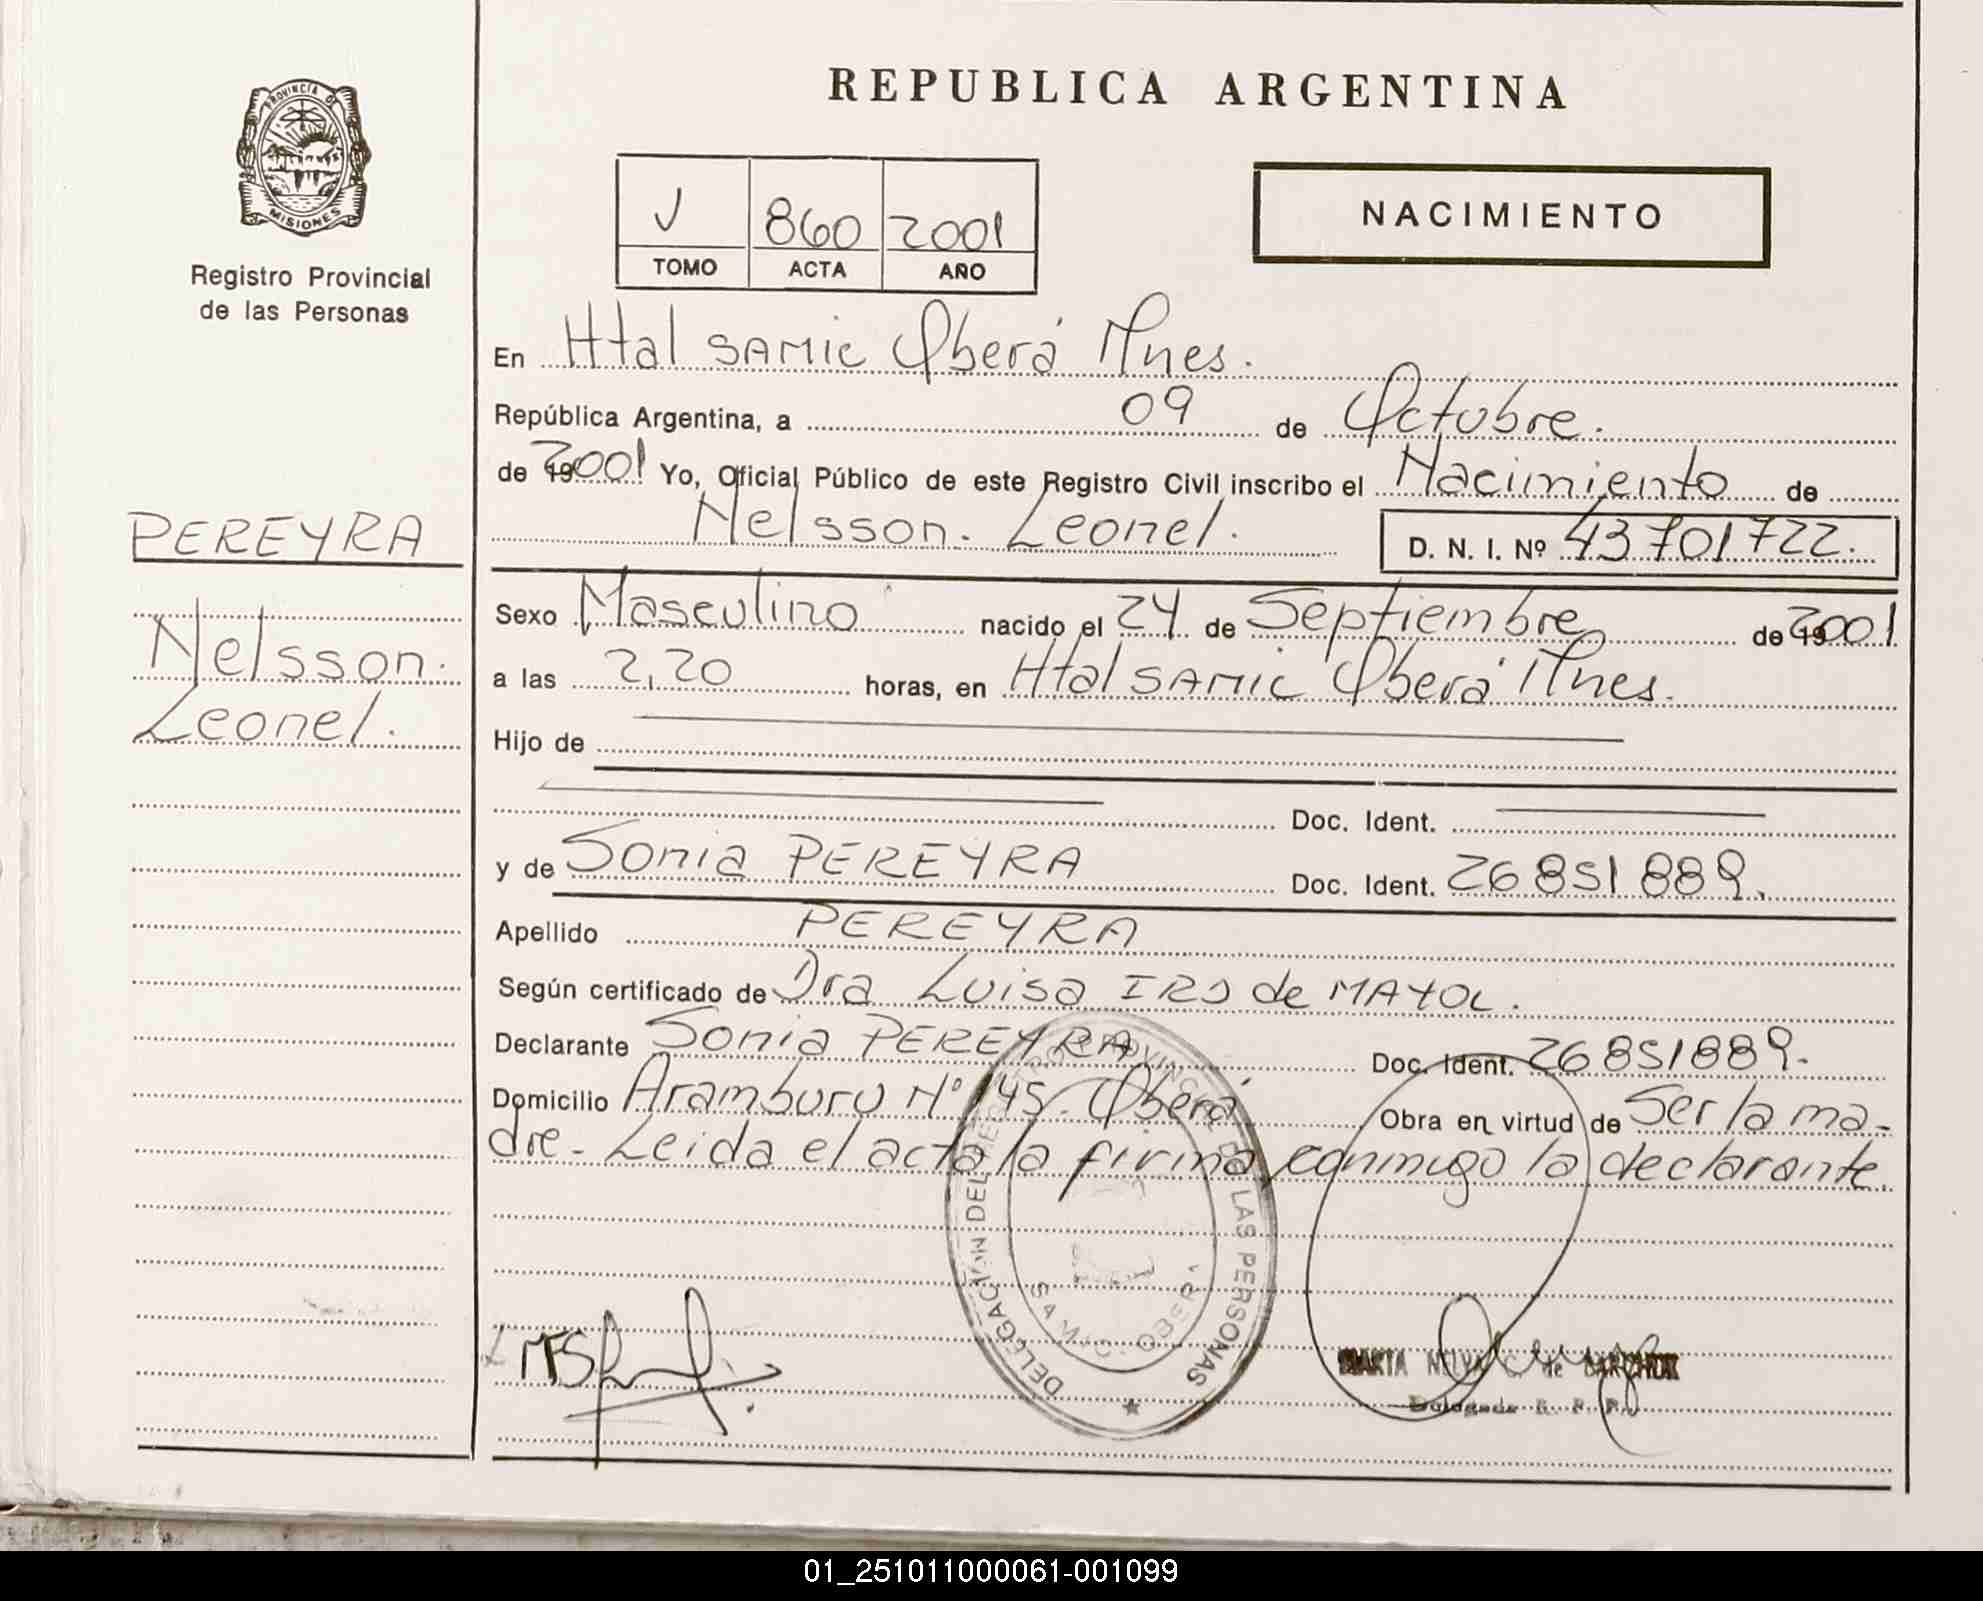 REPUBLICA ARGENTINA
PROVINCIA DE
MISIONES
Registro Provincial
de las Personas
V 860 2001
TOMO ACTA AÑO
NACIMIENTO
En Htal SAMIC Oberá Mnes.
República Argentina, a 09 de Octubre.
de 2001 Yo, Oficial Público de este Registro Civil inscribo el Nacimiento de
Nelsson. Leonel. D. N. I. Nº 43701722.
PEREYRA
Nelsson.
Leonel.
Sexo Masculino nacido el 24 de Septiembre de 2001
a las 2,20 horas, en Htal SAMIC Oberá Mnes.
Hijo de
Doc. Ident.
y de Sonia PEREYRA Doc. Ident. 26851889.
Apellido PEREYRA
Según certificado de Dra Luisa de MAYOL.
Declarante Sonia PEREYRA Doc. Ident. 26851889.
Domicilio Aramburu Nº 145. Oberá Obra en virtud de Ser la ma-
dre. Leida el acta la firma conmigo la declarante.
DELEGACIÓN DEL REGISTRO PROVINCIAL DE LAS PERSONAS
SAMIC - OBERÁ
MARTA NELVA C. de
Delegada R. P. P.
01_251011000061-001099